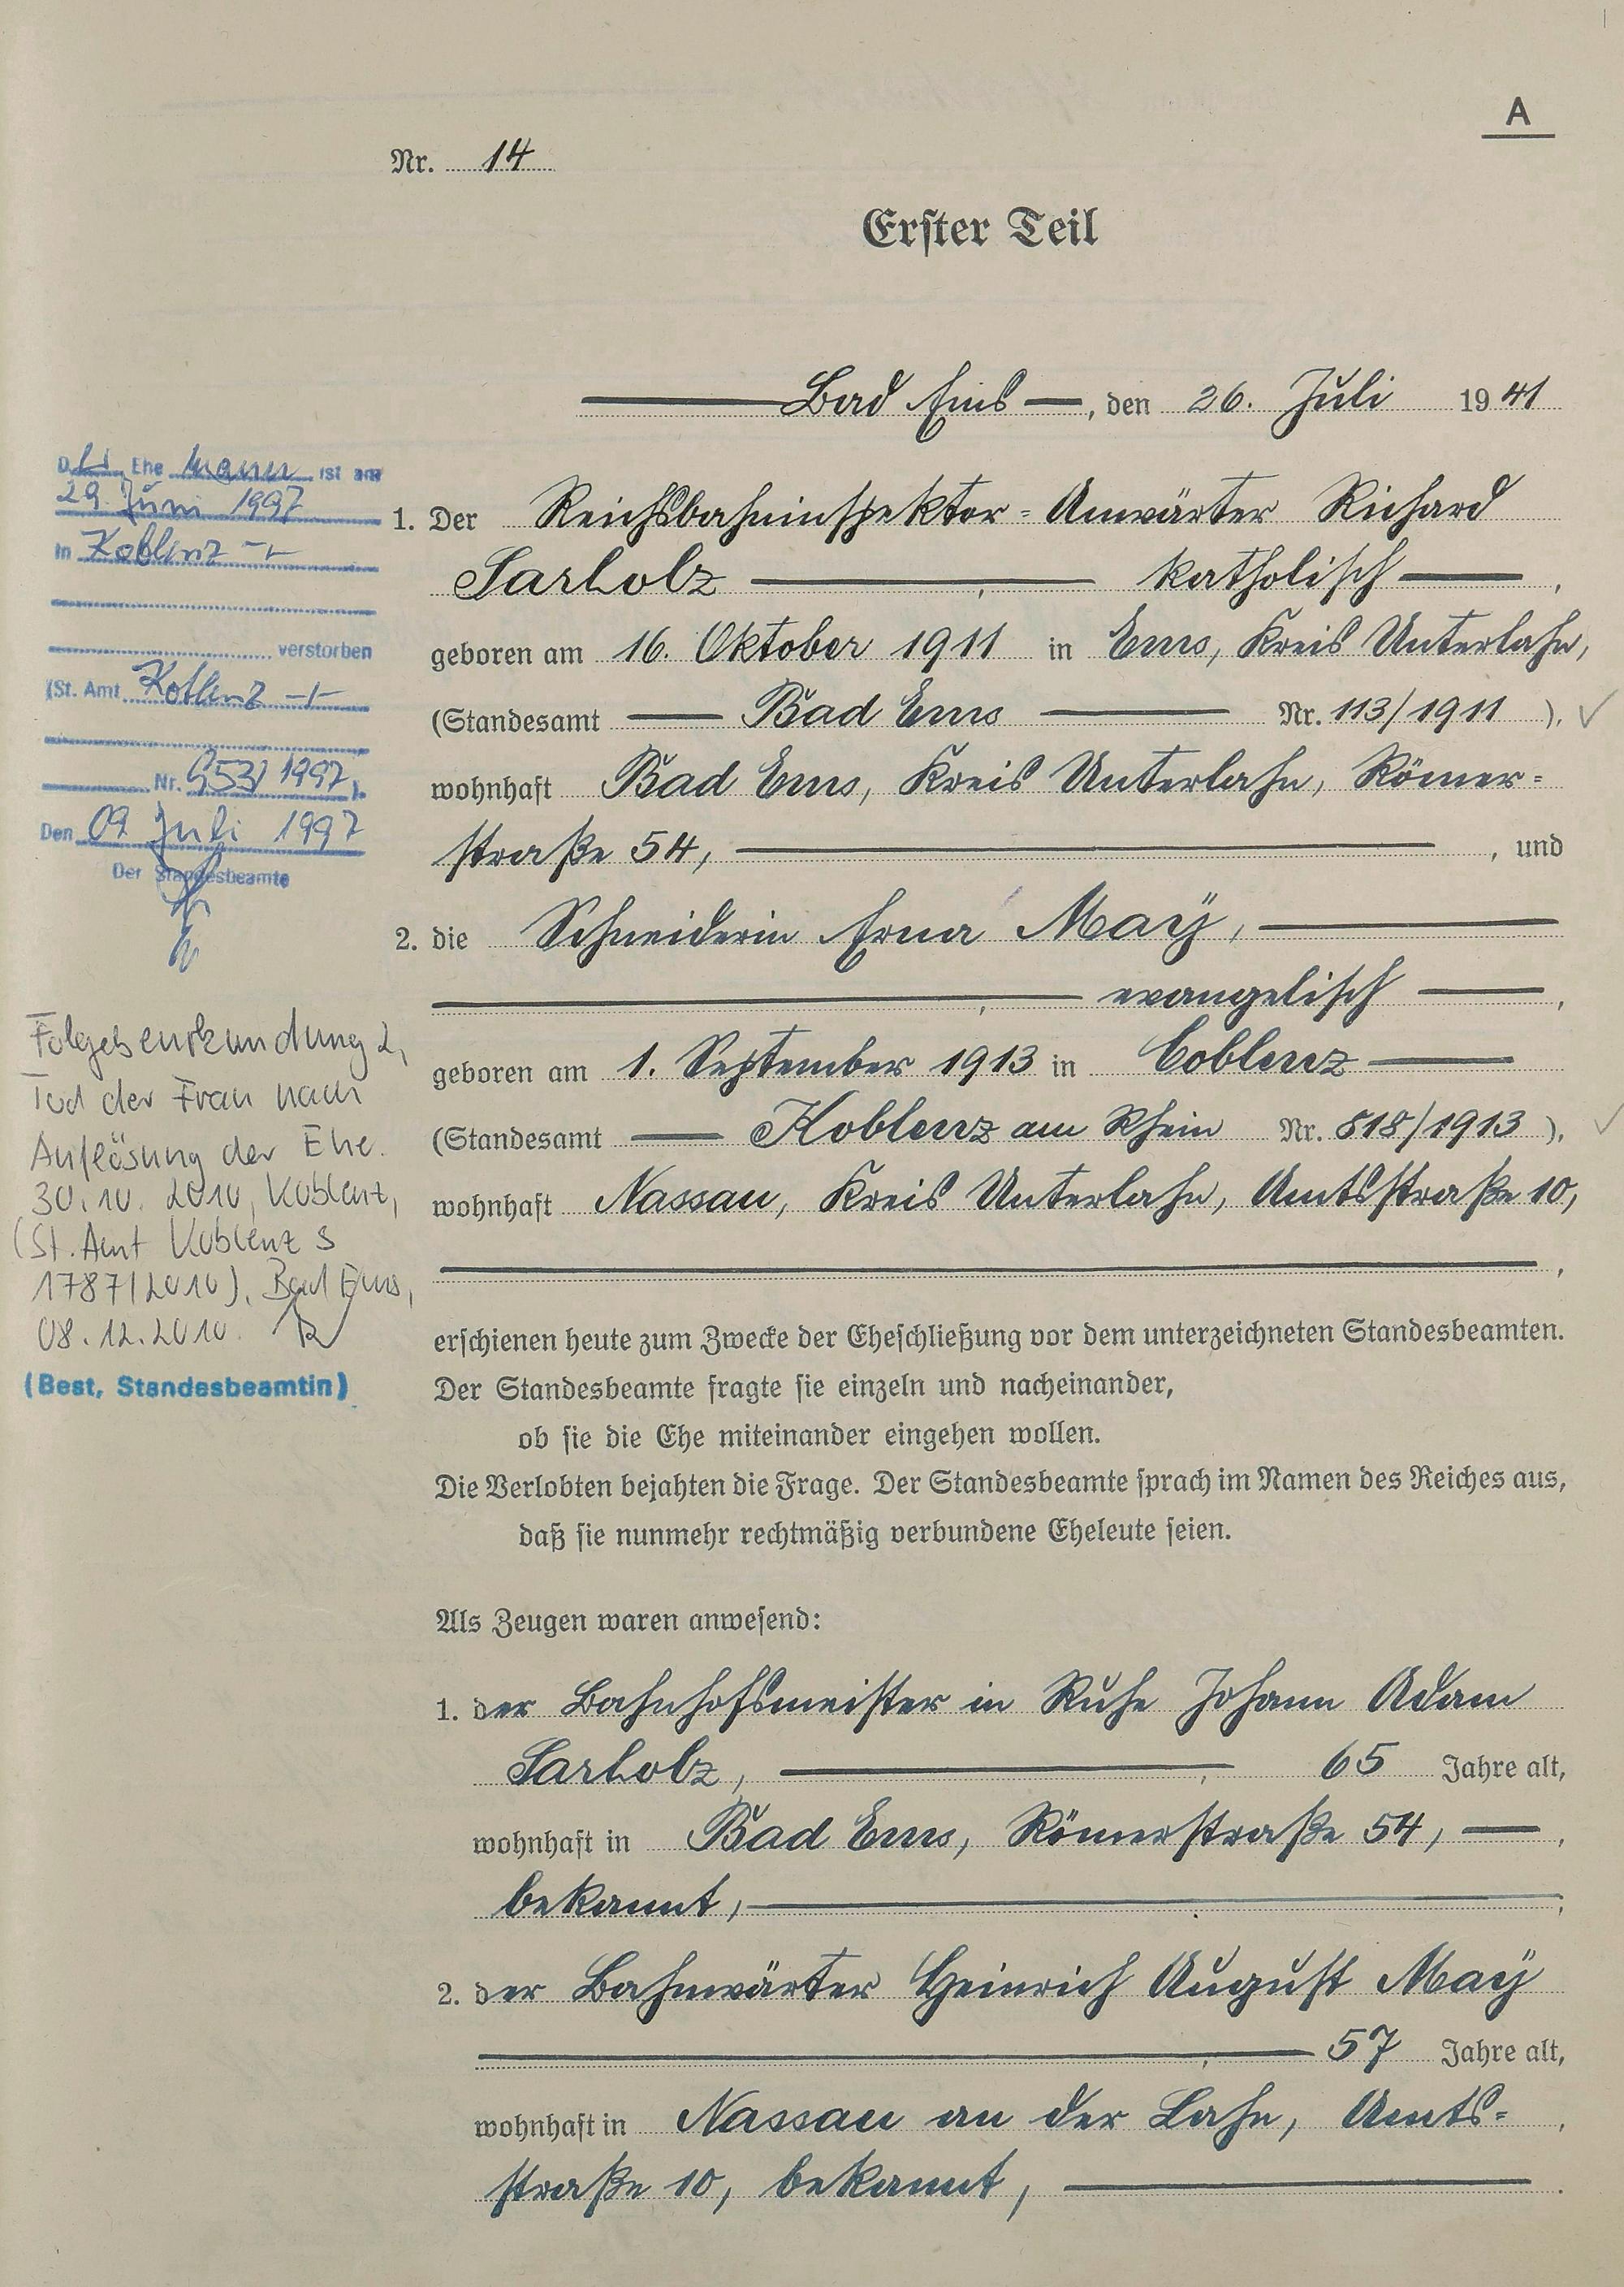 A
Nr. 14
Erster Teil
Bad Ems, den 26. Juli 1941
1. Der Reichsbahninspektor-Anwärter Richard
Sarholz, katholisch,
geboren am 16. Oktober 1911 in Ems, Kreis Unterlahn,
(Standesamt Bad Ems Nr. 113/1911),
wohnhaft Bad Ems, Kreis Unterlahn, Römer-
straße 54, und
2. die Schneiderin Erna Maÿ,
evangelisch,
geboren am 1. September 1913 in Coblenz
(Standesamt Koblenz am Rhein Nr. 818/1913),
wohnhaft Nassau, Kreis Unterlahn, Amtsstraße 10,
erschienen heute zum Zwecke der Eheschließung vor dem unterzeichneten Standesbeamten.
Der Standesbeamte fragte sie einzeln und nacheinander,
ob sie die Ehe miteinander eingehen wollen.
Die Verlobten bejahten die Frage. Der Standesbeamte sprach im Namen des Reiches aus,
daß sie nunmehr rechtmäßig verbundene Eheleute seien.
Als Zeugen waren anwesend:
1. der Bahnhofsmeister in Ruhe Johann Adam
Sarholz, 65 Jahre alt,
wohnhaft in Bad Ems, Römerstraße 54,
bekannt,
2. der Bahnwärter Heinrich August Maÿ
57 Jahre alt,
wohnhaft in Nassau an der Lahn, Amts-
straße 10, bekannt,
Der Ehe mann ist am
29. Juni 1997
in Koblenz
verstorben
(St. Amt Koblenz
Nr. 953/1997).
Den 09 Juli 1997
Der Standesbeamte
Folgebeurkundung 2,
Tod der Frau nach
Auflösung der Ehe.
30.10.2010, Koblenz,
(St. Amt Koblenz S
1787/2010). Bad Ems,
08.12.2010.
(Best, Standesbeamtin)